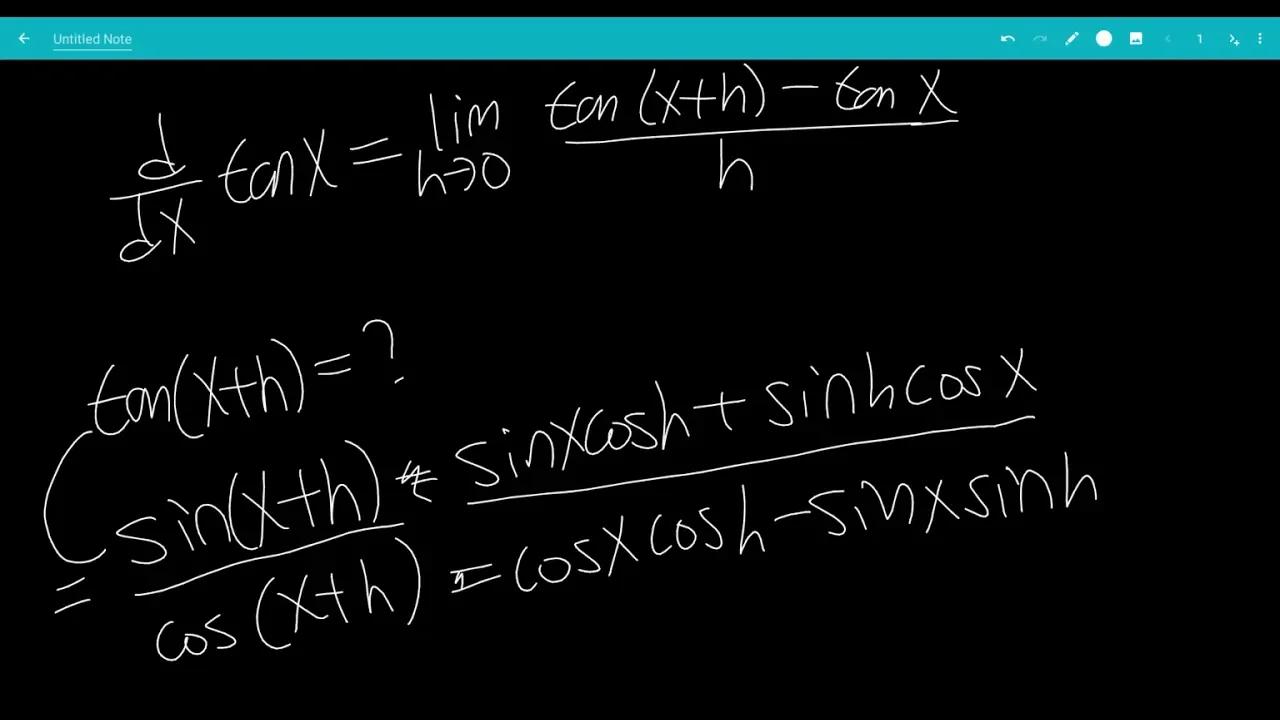 Untitled Note
1
d/dx tan x = lim h→0 (tan (x+h) − tan x)/h
tan(x+h) = ?
= sin(x+h)/cos (x+h) = (sin x cos h + sin h cos x)/(cos x cos h − sin x sin h)